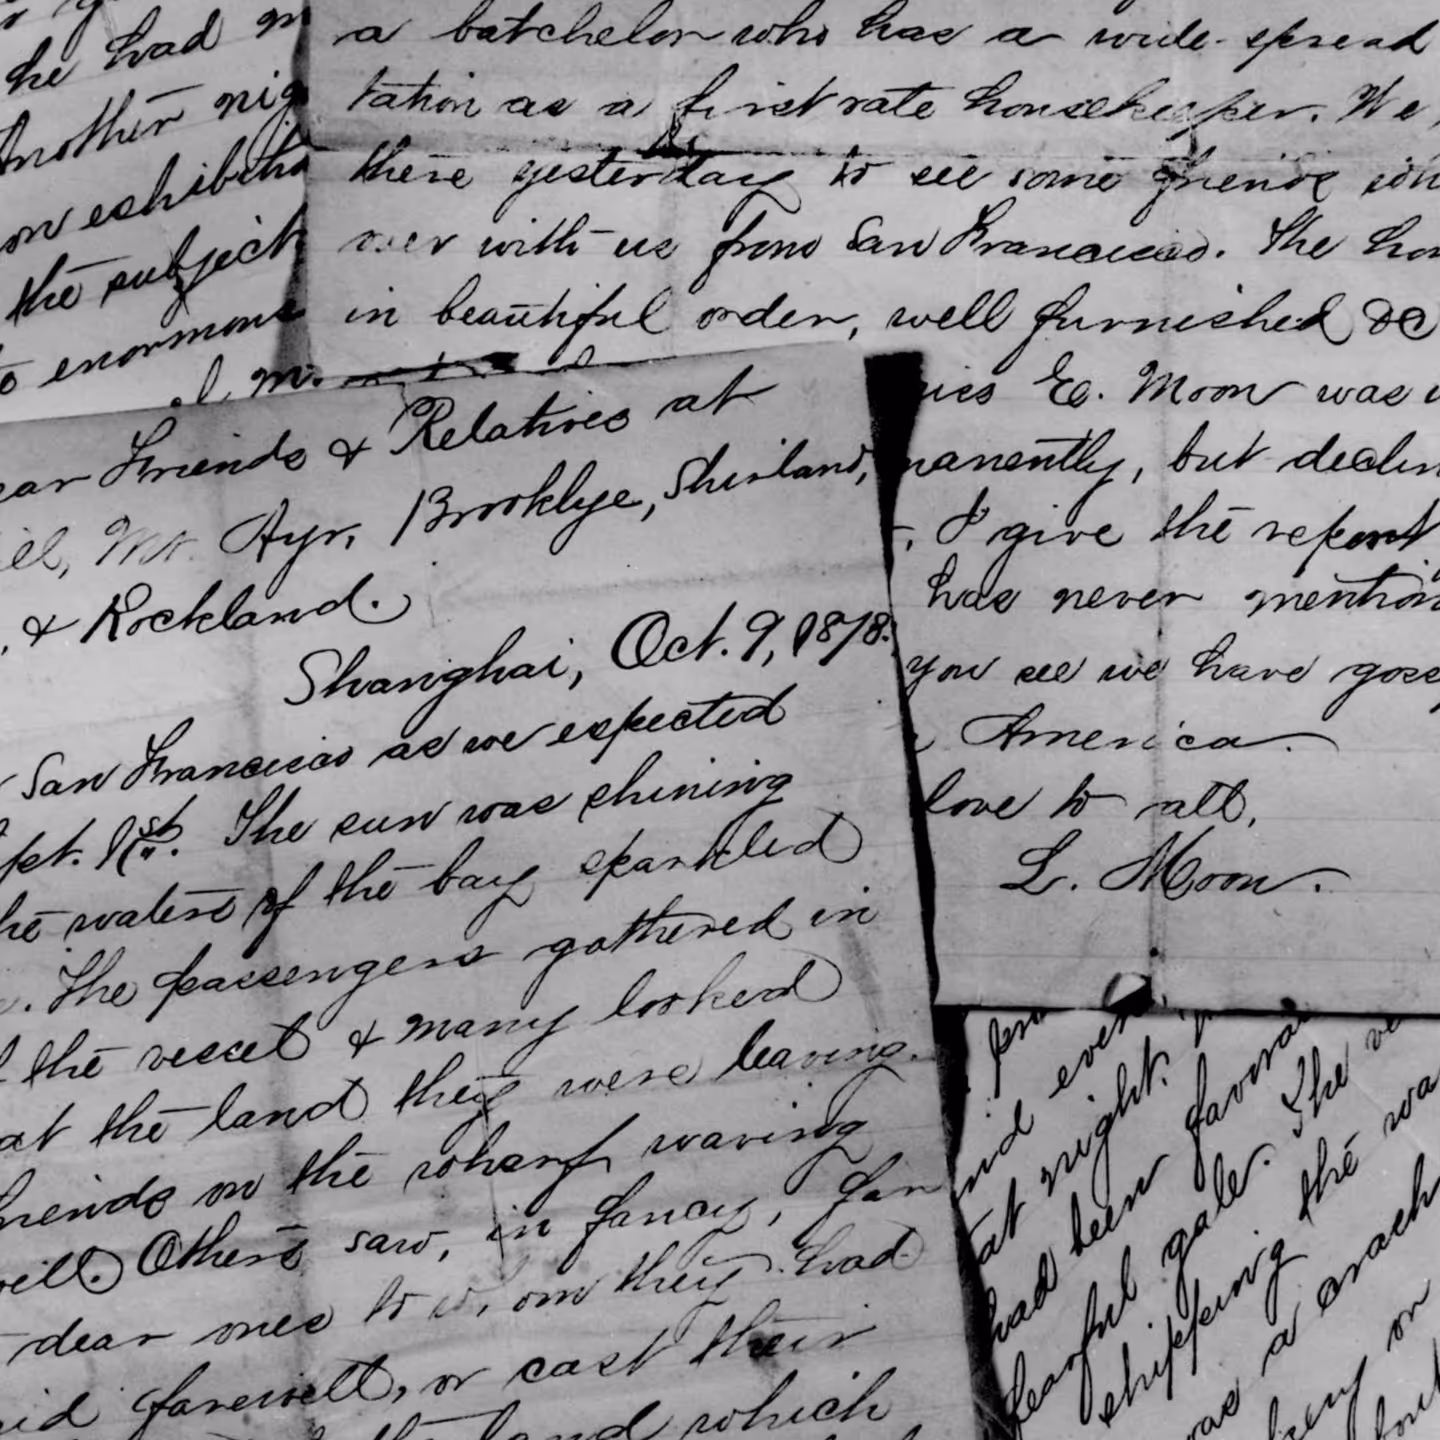 he had
Another nig
on exhibitio
the subject
to enormous
a batchelor who has a wide-spread
tation as a first rate housekeeper. We
there yesterday to see some friends
over with us from San Francisco. The hou
in beautiful order, well furnished &c
E. Moon was
manently, but declin
I give the report
has never mention
you see we have goss
America.
love to all,
L. Moon.
ear Friends & Relatives at
ill, Mt. Ayr, Brooklye, Shirland,
, & Rockland.
Shanghai, Oct. 9, 1878.
San Francisco as we expected
pt. 1st. The sun was shining
he waters of the bay sparkled
. The passengers gathered in
the vessel & many looked
at the land they were leaving.
friends on the wharf waving
well. Others saw, in fancy, far
dear ones to whom they had
id farewell, or cast their
the land which
nd even
at night.
had been favora
fearful gale. The ve
shipping the wa
was a crash
on